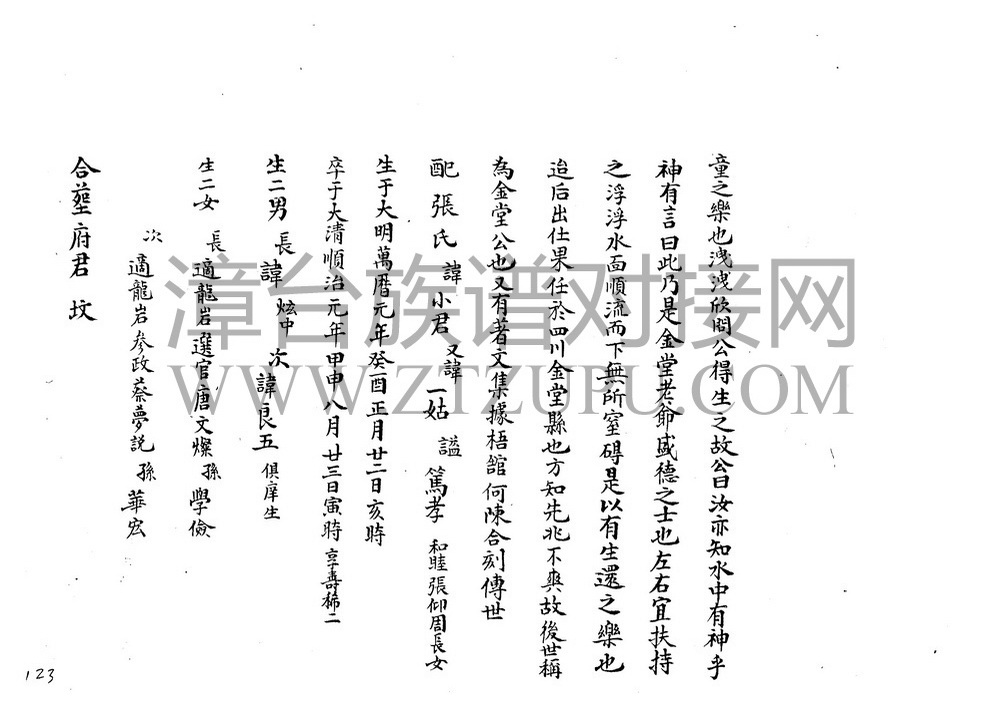 童之樂也洩洩欣問公得生之故公曰汝亦知水中有神乎
神有言曰此乃是金堂老爺盛德之士也左右宜扶持
之浮浮水面順流而下無所窒碍是以有生還之樂也
迨后出仕果任於四川金堂縣也方知先兆不爽故後世稱
為金堂公也又有著文集據梧舘何陳合刻傳世
配張氏 諱小君 又諱一姑 謚篤孝 和睦張仰周長女
生于大明萬曆元年癸酉正月廿二日亥時
卒于大清順治元年甲申八月廿三日寅時 享壽柒二
生二男 長諱炫中 次諱良五 俱庠生
生二女 長適龍岩選官唐文燦孫 學儉
次適龍岩參政蔡夢説孫 華宏
合塟府君 坟
漳台族谱对接网
WWW.ZTZUPU.COM
123